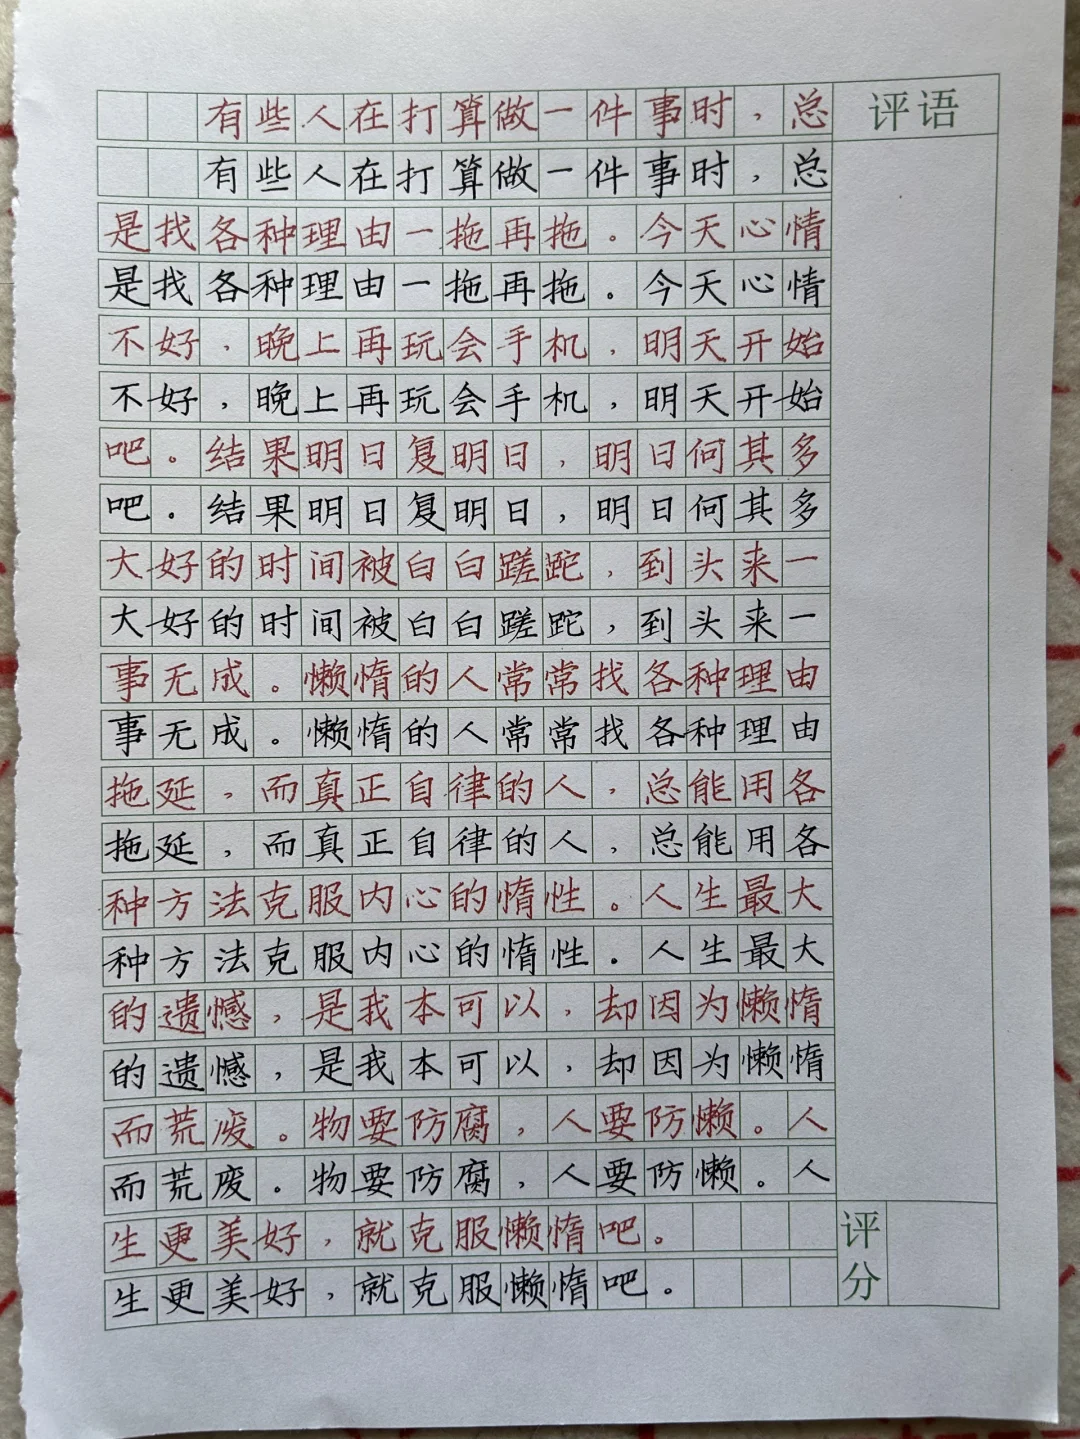 有些人在打算做一件事时，总
评语
有些人在打算做一件事时，总
是找各种理由一拖再拖。今天心情
是找各种理由一拖再拖。今天心情
不好，晚上再玩会手机，明天开始
不好，晚上再玩会手机，明天开始
吧。结果明日复明日，明日何其多
吧。结果明日复明日，明日何其多
大好的时间被白白蹉跎，到头来一
大好的时间被白白蹉跎，到头来一
事无成。懒惰的人常常找各种理由
事无成。懒惰的人常常找各种理由
拖延，而真正自律的人，总能用各
拖延，而真正自律的人，总能用各
种方法克服内心的惰性。人生最大
种方法克服内心的惰性。人生最大
的遗憾，是我本可以，却因为懒惰
的遗憾，是我本可以，却因为懒惰
而荒废。物要防腐，人要防懒。人
而荒废。物要防腐，人要防懒。人
生更美好，就克服懒惰吧。
生更美好，就克服懒惰吧。
评分